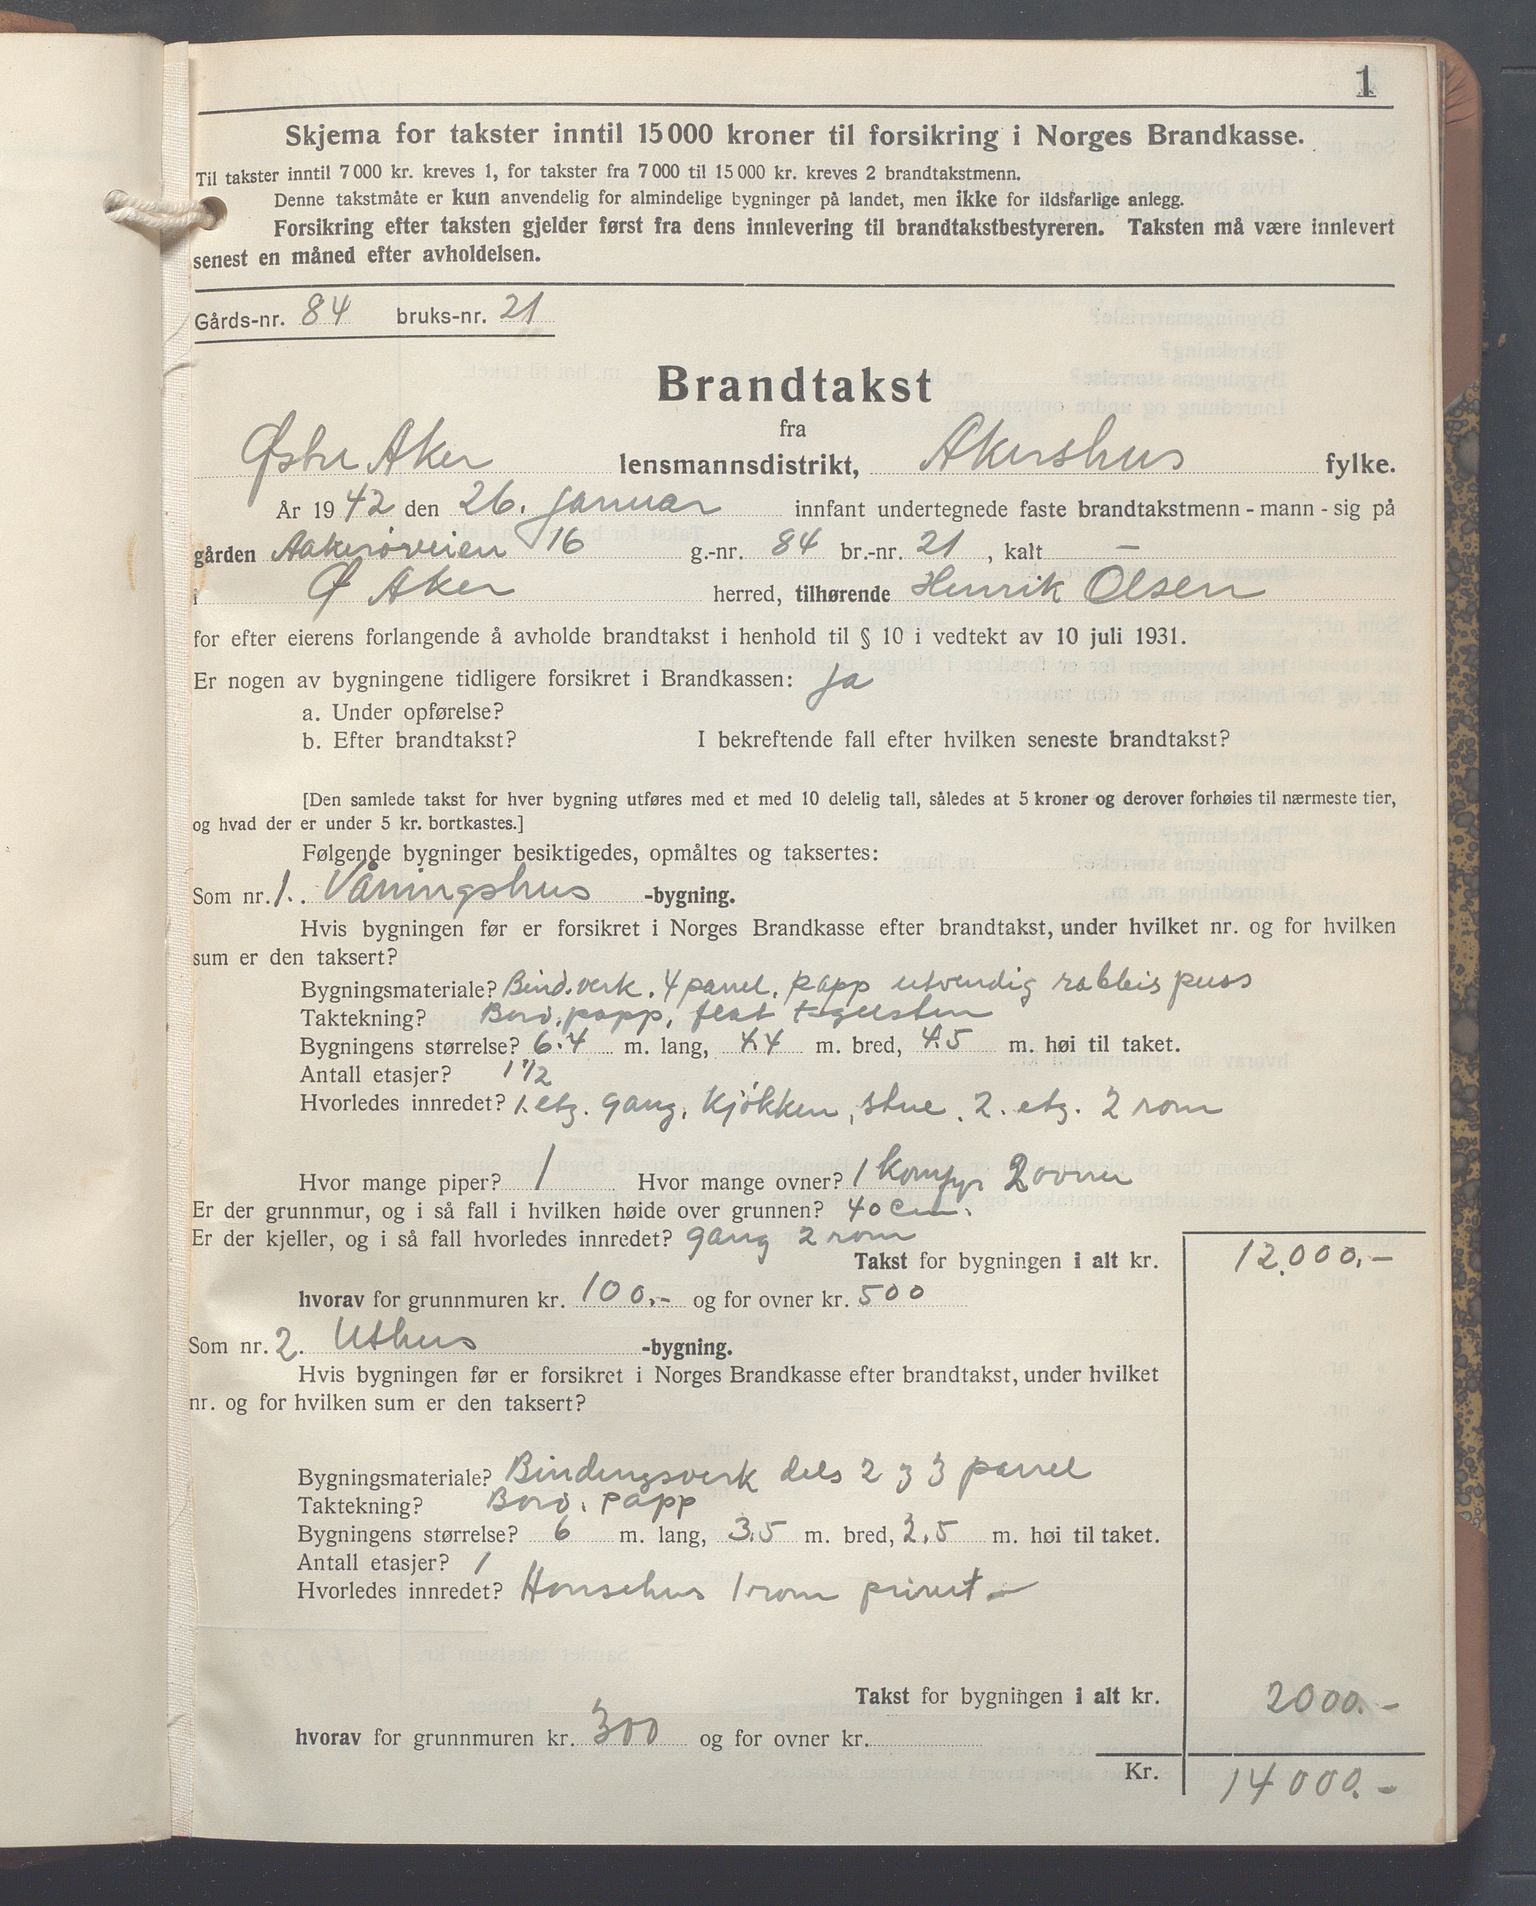 1
Skjema for takster inntil 15 000 kroner til forsikring i Norges Brandkasse.
Til takster inntil 7 000 kr. kreves 1, for takster fra 7 000 til 15 000 kr. kreves 2 brandtakstmenn.
Denne takstmåte er kun anvendelig for almindelige bygninger på landet, men ikke for ildsfarlige anlegg.
Forsikring efter taksten gjelder først fra dens innlevering til brandtakstbestyreren. Taksten må være innlevert
senest en måned efter avholdelsen.
Gårds-nr. 84 bruks-nr. 21
Brandtakst
fra
Østre Aker lensmannsdistrikt, Akershus fylke.
År 1942 den 26. januar innfant undertegnede faste brandtakstmenn - mann - sig på
gården Aakerøveien 16 g.-nr. 84 br.-nr. 21, kalt —
i Ø Aker herred, tilhørende Henrik Olsen
for efter eierens forlangende å avholde brandtakst i henhold til § 10 i vedtekt av 10 juli 1931.
Er nogen av bygningene tidligere forsikret i Brandkassen: Ja
a. Under opførelse?
b. Efter brandtakst? I bekreftende fall efter hvilken seneste brandtakst?
[Den samlede takst for hver bygning utføres med et med 10 delelig tall, således at 5 kroner og derover forhøies til nærmeste tier,
og hvad der er under 5 kr. bortkastes.]
Følgende bygninger besiktigedes, opmåltes og taksertes:
Som nr. 1. Våningshus -bygning.
Hvis bygningen før er forsikret i Norges Brandkasse efter brandtakst, under hvilket nr. og for hvilken
sum er den taksert?
Bygningsmateriale? Bind.verk. 4 panel, papp utvendig rabbis puss
Taktekning? Bord, papp, flat tegelsten
Bygningens størrelse? 6.4 m. lang, 4.4 m. bred, 4.5 m. høi til taket.
Antall etasjer? 1 1/2
Hvorledes innredet? 1. etg. gang, kjøkken, stue. 2. etg. 2 rom
Hvor mange piper? 1 Hvor mange ovner? 1 komfyr 2 ovner
Er der grunnmur, og i så fall i hvilken høide over grunnen? 40 cm.
Er der kjeller, og i så fall hvorledes innredet? gang 2 rom
Takst for bygningen i alt kr. 12.000.-
hvorav for grunnmuren kr. 100.- og for ovner kr. 500
Som nr. 2. Uthus -bygning.
Hvis bygningen før er forsikret i Norges Brandkasse efter brandtakst, under hvilket
nr. og for hvilken sum er den taksert?
Bygningsmateriale? Bindingsverk dels 2 g 3 panel
Taktekning? Bord, papp
Bygningens størrelse? 6 m. lang, 3.5 m. bred, 2.5 m. høi til taket.
Antall etasjer? 1
Hvorledes innredet? Hønsehus 1 rom privet
Takst for bygningen i alt kr. 2000.-
hvorav for grunnmuren kr. 300 og for ovner kr.
Kr. 14000.-